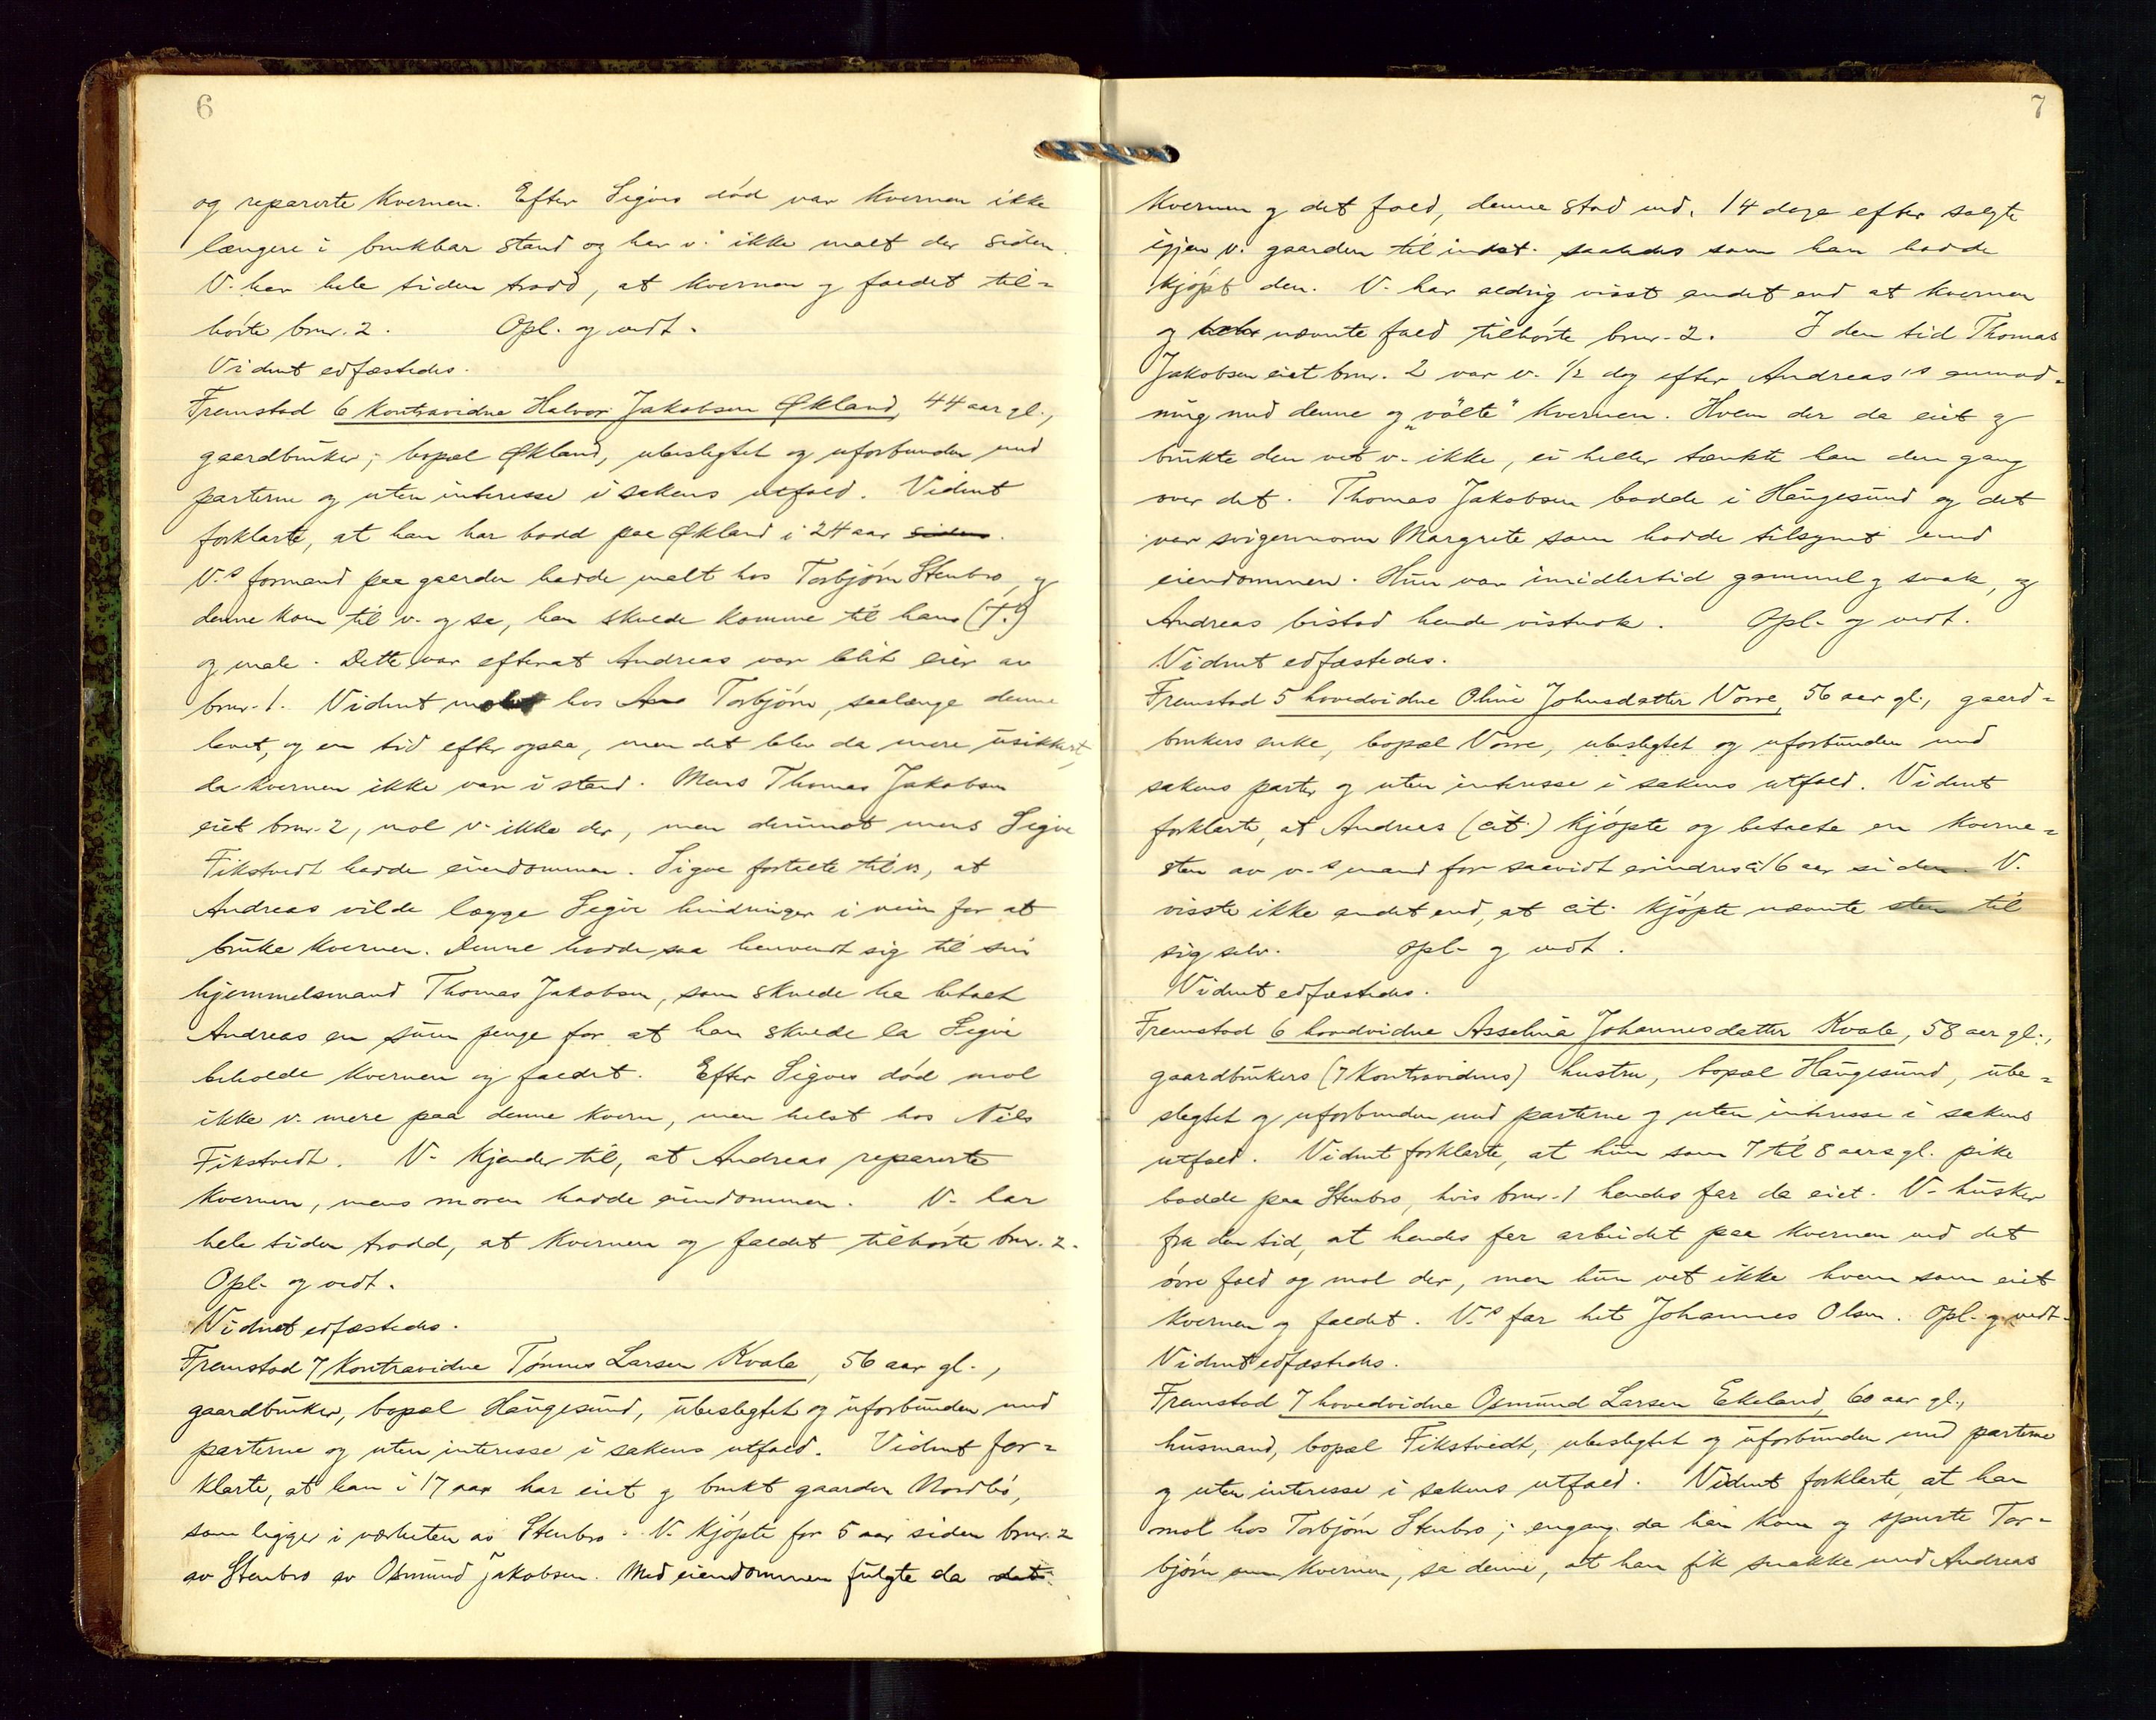 6
og reparerte kvernen. Efter Sigves død var kvernen ikke
længere i brukbar stand og har v. ikke malt der siden.
V. har hele tiden trodd, at kvernen og faldet til=
hørte brnr. 2. Opl. og vedt.
Vidnet edfæstedes.
Fremstod 6 kontravidne Halvor Jakobsen Økland, 44 aar gl.,
gaardbruker, bopæl Økland, ubeslegtet og uforbunden med
parterne og uten interesse i sakens utfald. Vidnet
forklarte, at han har bodd paa Økland i 24 aar siden.
V.s formand paa gaarden hadde malt hos Torbjørn Stenbro, og
denne kom til v. og sa, han skulde komme til ham (T.)
og male. Dette var efterat Andreas var blit eier av
brnr. 1. Vidnet molet hos And Torbjørn, saalænge denne
levet, og en tid efter ogsaa, men det blev da mere usikkert,
da kvernen ikke var i stand. Mens Thomas Jakobsen
eiet brnr. 2, mol v. ikke der, men derimot mens Sigve
Fikstvedt hadde eiendommen. Sigve fortalte til v., at
Andreas vilde lægge Sigve hindringer i veien for at
bruke kvernen. Denne hadde saa henvendt sig til sin
hjemmelsmand Thomas Jakobsen, som skulde ha betalt
Andreas en sum penge for at han skulde la Sigve
beholde kvernen og faldet. Efter Sigves død mol
ikke v. mere paa denne kvern, men helst hos Nils
Fikstvedt. V. kjender til, at Andreas reparerte
kvernen, mens moren hadde eiendommen. V. har
hele tiden trodd, at kvernen og faldet tilhørte brnr. 2.
Opl. og vedt.
Vidnet edfæstedes.
Fremstod 7 kontravidne Tønnes Larsen Kvale, 56 aar gl.,
gaardbruker, bopæl Haugesund, ubeslegtet og uforbunden med
parterne og uten interesse i sakens utfald. Vidnet for=
klarte, at han i 17 aar har eiet og brukt gaarden Nordbø,
som ligger i nærheten av Stenbro. V. kjøpte for 5 aar siden brnr. 2
av Stenbro av Osmund Jakobsen. Med eiendommen fulgte da det
7
kvernen og det fald, denne stod ved. 14 dage efter solgte
igjen v. gaarden til indst. saaledes som han hadde
kjøpt den. V. har aldrig visst andet end at kvernen
og nævnte fald tilhørte brnr. 2. I den tid Thomas
Jakobsen eiet brnr. 2 var v. 1/2 dag efter Andreas's anmod=
ning med denne og "vølte" kvernen. Hvem der da eiet og
brukte den vet v. ikke, ei heller tænkte han den gang
over det. Thomas Jakobsen bodde i Haugesund og det
var svigermoren Margrete som hadde tilsynet med
eiendommen. Hun var imidlertid gammel og svak, og
Andreas bistod hende vistnok. Opl. og vedt.
Vidnet edfæstedes.
Fremstod 5 hovedvidne Oline Johnsdatter Vorre, 56 aar gl., gaard=
brukers enke, bopæl Vorre, ubeslegtet og uforbunden med
sakens parter og uten interesse i sakens utfald. Vidnet
forklarte, at Andreas (cit.) kjøpte og betalte en kverne=
sten av v.s mand for saavidt erindres ca. 16 aar siden. V.
visste ikke andet end, at cit. kjøpte nævnte sten til
sig selv. Opl. og vedt.
Vidnet edfæstedes.
Fremstod 6 hovedvidne Asselina Johannesdatter Kvale, 58 aar gl.,
gaardbrukers (7 kontravidnes) hustru, bopæl Haugesund, ube=
slegtet og uforbunden med parterne og uten interesse i sakens
utfald. Vidnet forklarte, at hun som 7 til 8 aars gl. pike
bodde paa Stenbro, hvis brnr. 1 hendes far da eiet. V. husker
fra den tid, at hendes far arbeidet paa kvernen ved det
øvre fald og mol der, men hun vet ikke hvem som eiet
kvernen og faldet. V.s far het Johannes Olsen. Opl. og vedt.
Vidnet edfæstedes.
Fremstod 7 hovedvidne Osmund Larsen Ekeland, 60 aar gl.,
husmand, bopæl Fikstvedt, ubeslegtet og uforbunden med parterne
og uten interesse i sakens utfald. Vidnet forklarte, at han
mol hos Torbjørn Stenbro; engang da han kom og spurte Tor=
bjørn om kvernen, sa denne, at han fik snakke med Andreas